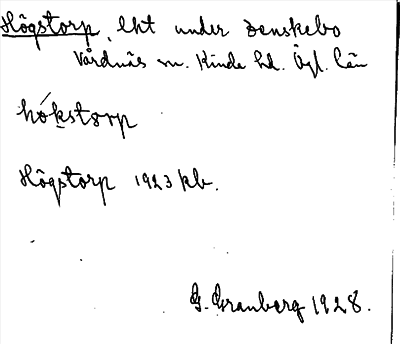 Högstorp, lht under Zenskebo
Vårdnäs sn. Kinda hd. Ögl. län
hó̱kstorp
Högstorp 1923 kb.
G. Granberg 1928.